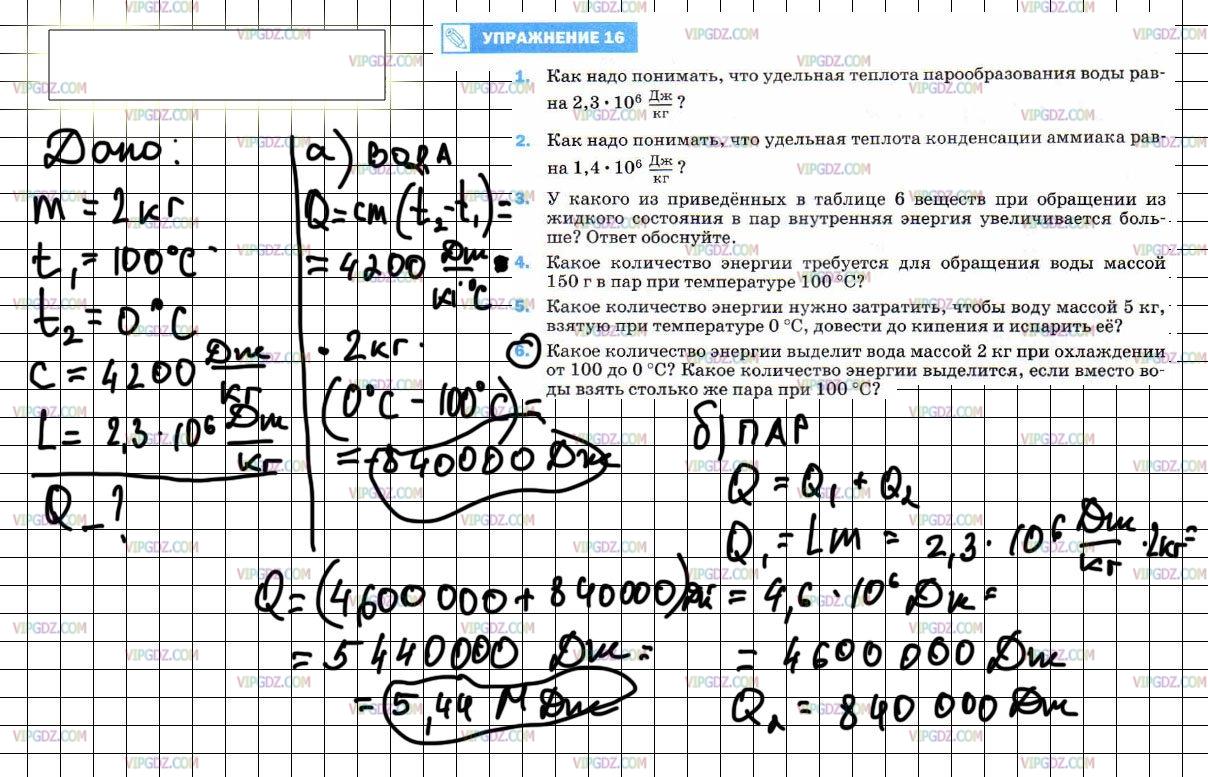 УПРАЖНЕНИЕ 16
1. Как надо понимать, что удельная теплота парообразования воды рав-
на 2,3 • 10⁶ Дж/кг ?
2. Как надо понимать, что удельная теплота конденсации аммиака рав-
на 1,4 • 10⁶ Дж/кг ?
3. У какого из приведённых в таблице 6 веществ при обращении из
жидкого состояния в пар внутренняя энергия увеличивается боль-
ше? Ответ обоснуйте.
4. Какое количество энергии требуется для обращения воды массой
150 г в пар при температуре 100 °С?
5. Какое количество энергии нужно затратить, чтобы воду массой 5 кг,
взятую при температуре 0 °С, довести до кипения и испарить её?
6. Какое количество энергии выделит вода массой 2 кг при охлаждении
от 100 до 0 °С? Какое количество энергии выделится, если вместо во-
ды взять столько же пара при 100 °С?
Дано:
m = 2 кг
t₁ = 100°C
t₂ = 0°C
c = 4200 Дж/кг
L = 2,3 · 10⁶ Дж/кг
Q - ?
а) ВОДА
Q = cm (t₂ - t₁) =
= 4200 Дж/кг·°C •
· 2 кг ·
(0°C - 100°C) =
= -840000 Дж
б) ПАР
Q = Q₁ + Q₂
Q₁ = Lm = 2,3 · 10⁶ Дж/кг · 2кг =
= 4,6 · 10⁶ Дж =
= 4600 000 Дж
Q₂ = 840 000 Дж
Q = (4,600 000 + 840000) Дж =
= 5 440000 Дж =
= 5,44 М Дж
VIPGDZ.COM